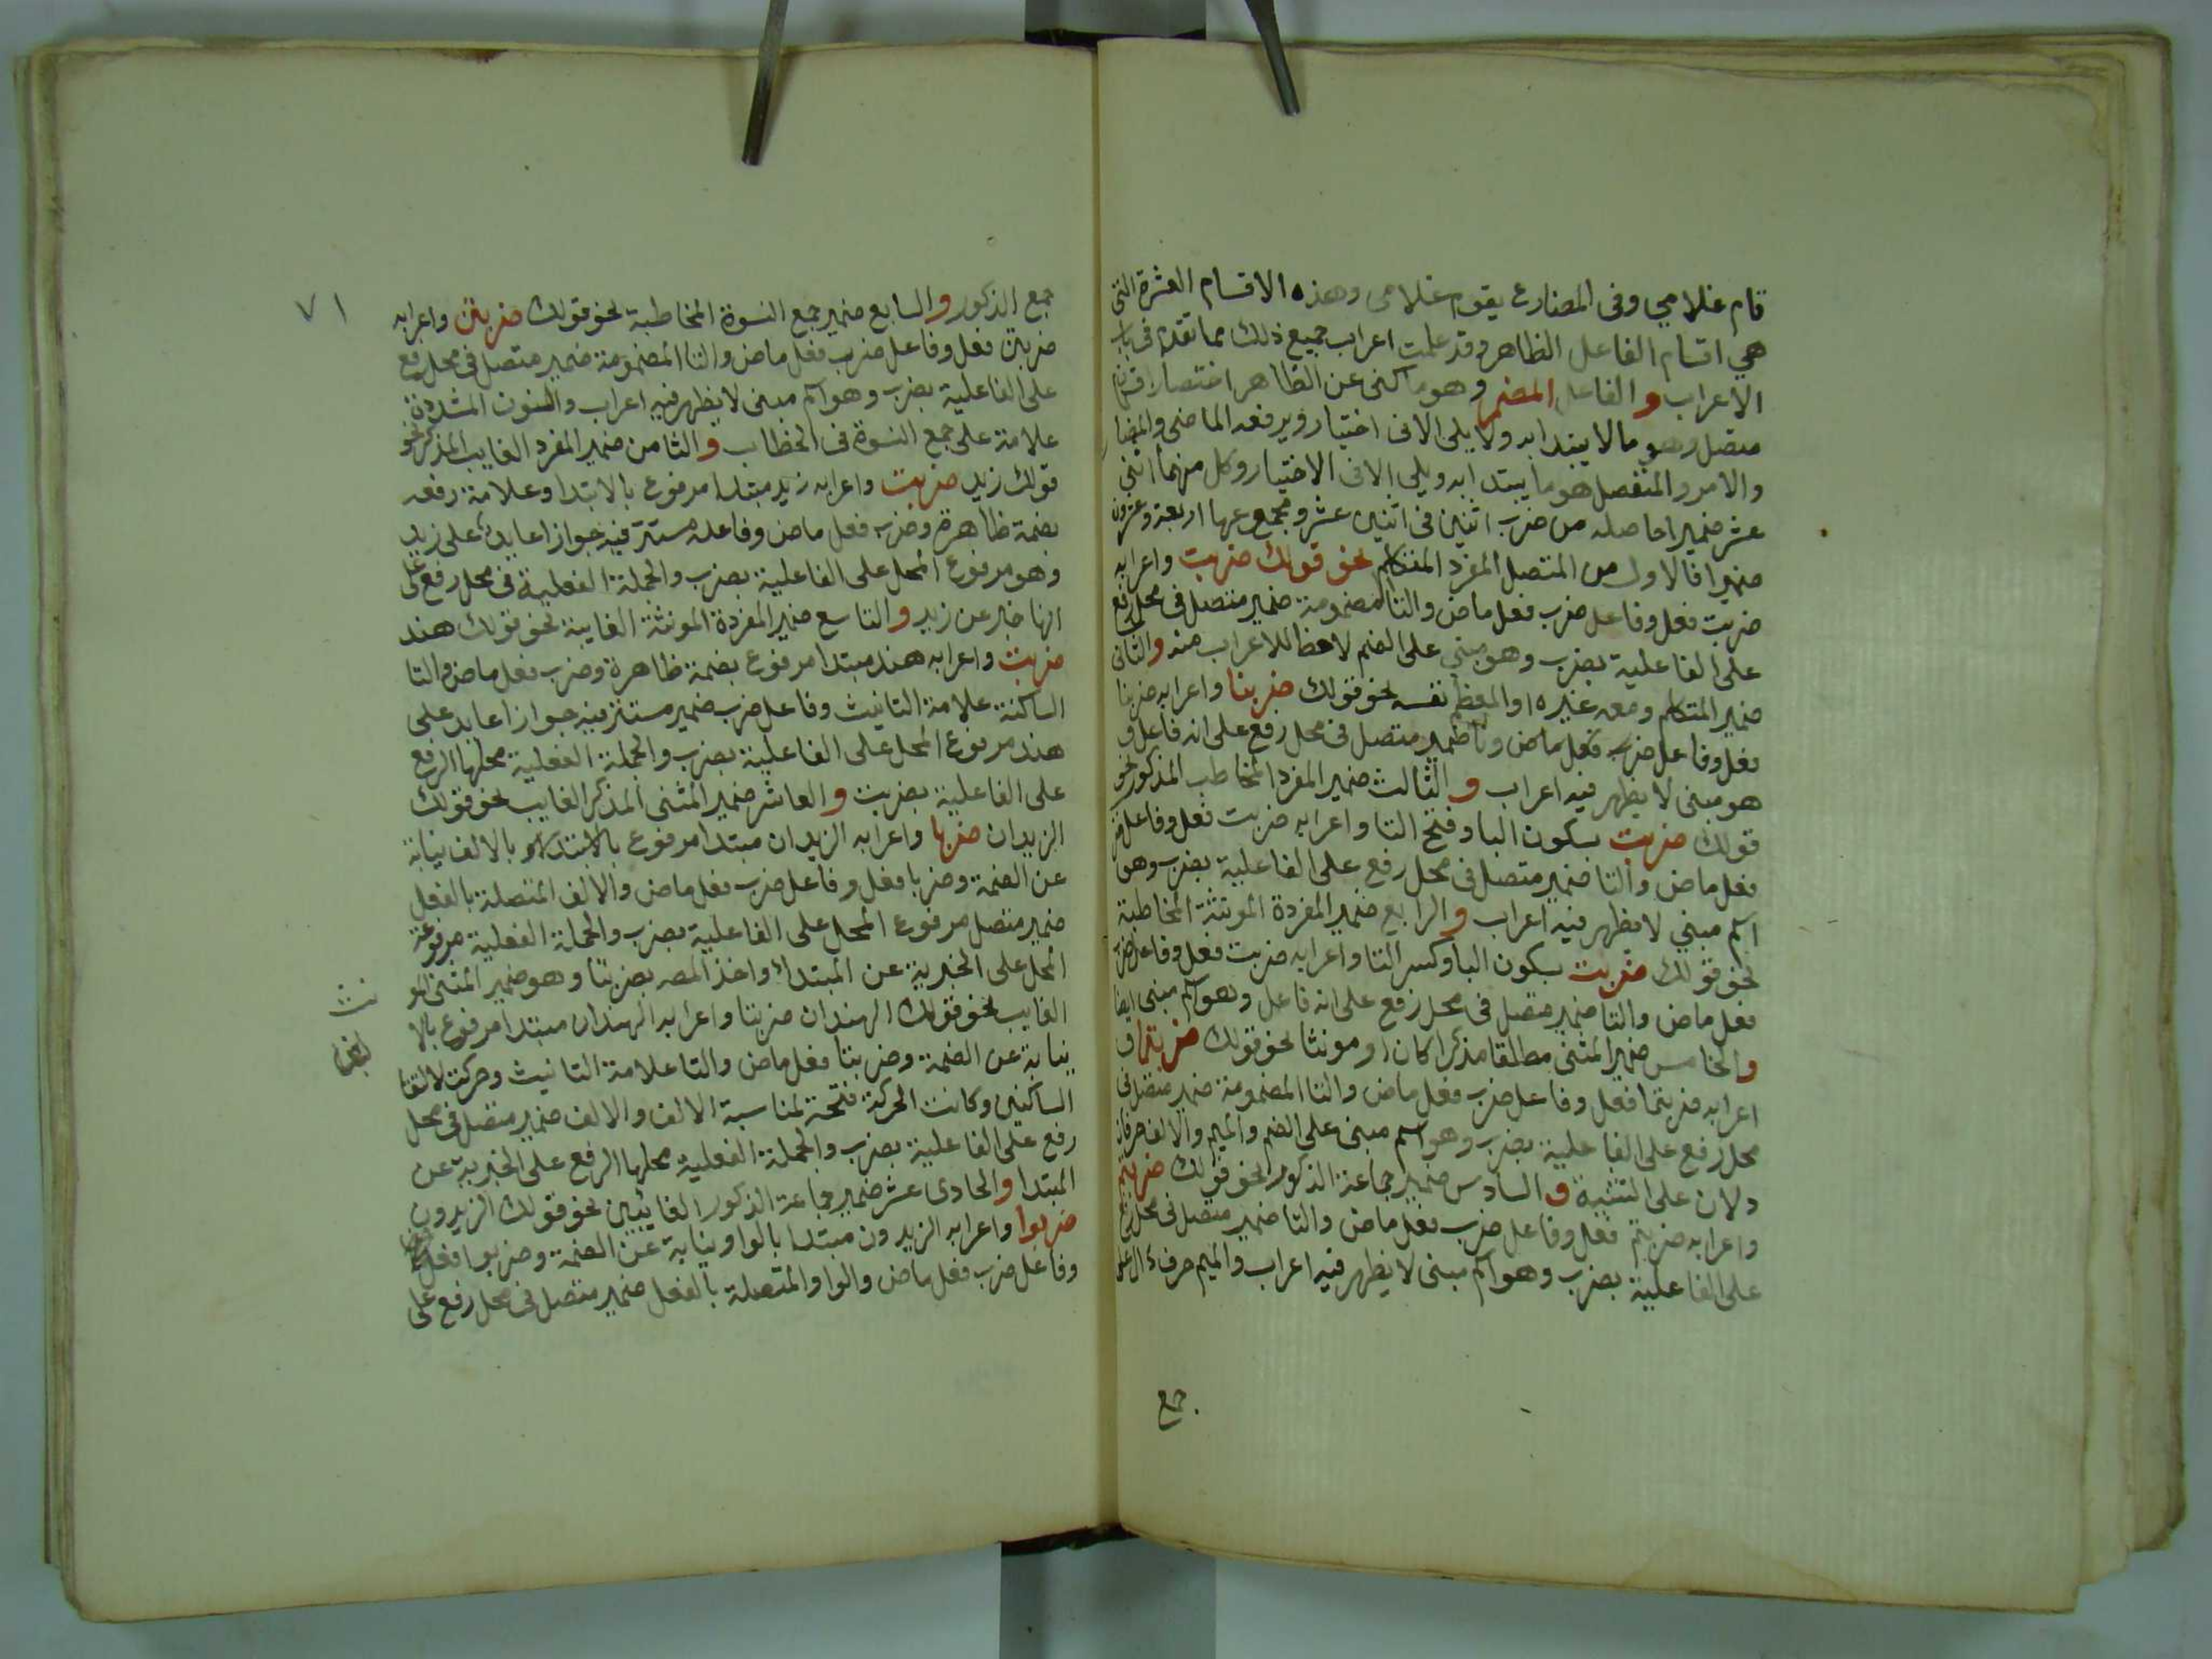 قام غلامي وفى المضارع يقوم غلامى وهذه الاقسام العشرة التى
هي اقسام الفاعل الظاهر وقد علمت اعراب جميع ذلك مما تقدم فى باب
الاعراب والفاعل المضمر وهو ما كنى عن الظاهر اختصارا
متصل وهو مالا يبتدا به ولا يلى الا فى اختيار ويرفعه الماضى والمضا
والامر والمنفصل هو ما يبتدا به ويلى الا فى الاختيار وكل منهما اثنى
عشر ضميرا حاصله من ضرب اثنين فى اثنين عشر ومجموعها اربعة وعشرون
ضميرا فالاول من المتصل المفرد المتكلم نحو قولك ضربت واعرابه
ضربت فعل وفاعل ضرب فعل ماض والتا المضمومة ضمير متصل فى محل رفع
على الفاعلية بضرب وهو مبني على الضم لا حظ للاعراب منه والثانى
ضمير المتكلم ومعه غيره او المعظم نفسه نحو قولك ضربنا واعرابه ضربنا
فعل وفاعل ضرب فعل ماض ونا ضمير متصل فى محل رفع على انه فاعل و
هو مبنى لا يظهر فيه اعراب والثالث ضمير المفرد المخاطب المذكور نحو
قولك ضربت بسكون البا وفتح التا واعرابه ضربت فعل وفاعل ضر
فعل ماض والتا ضمير متصل فى محل رفع على الفاعلية بضرب وهو
اسم مبني لا يظهر فيه اعراب والرابع ضمير المفردة المونثة المخاطبة
نحو قولك ضربت بسكون البا وكسر التا واعرابه ضربت فعل وفاعل ضرب
فعل ماض والتا ضمير متصل فى محل رفع على انه فاعل وهو اسم مبنى ايضا
والخامس ضمير المثنى مطلقا مذكرا كان او مونثا نحو قولك ضربتما و
اعرابه ضربتما فعل وفاعل ضرب فعل ماض والتا المضمومة ضمير متصل فى
محل رفع على الفاعلية بضرب وهو اسم مبنى على الضم والميم والالف حرفان
دلان على التثنية والسادس ضمير جماعة الذكور نحو قولك ضربتم
واعرابه ضربتم فعل وفاعل ضرب فعل ماض والتا ضمير متصل فى محل رفع
على الفاعلية بضرب وهو اسم مبنى لا يظهر فيه اعراب والميم حرف دال على
جمع
٧١
جمع الذكور والسابع ضمير جمع النسوة المخاطبة نحو قولك ضربتن واعرابه
ضربتن فعل وفاعل ضرب فعل ماض والتا المضمومة ضمير متصل فى محل رفع
على الفاعلية بضرب وهو اسم مبنى لا يظهر فيه اعراب والنون المشددة
علامة على جمع النسوة فى الخطاب والثامن ضمير المفرد الغايب المذكر نحو
قولك زيد ضربت واعرابه زيد مبتدا مرفوع بالابتدا وعلامة رفعه
بضمة ظاهرة وضرب فعل ماض وفاعله مستتر فيه جوازا عايد على زيد
وهو مرفوع المحل على الفاعلية بضرب والجملة الفعلية فى محل رفع على
انها خبر عن زيد والتاسع ضمير المفردة المونثة الغايبة نحو قولك هند
ضربت واعرابه هند مبتدا مرفوع بضمة ظاهرة وضرب فعل ماض والتا
الساكنة علامة التانيث وفاعل ضرب ضمير مستتر فيه جوازا عايد على
هند مرفوع المحل على الفاعلية بضرب والجملة الفعلية محلها الرفع
على الفاعلية بضربت والعاشر ضمير المثنى المذكر الغايب نحو قولك
الزيدان ضربا واعرابه الزيدان مبتدا مرفوع بالابتدا بالالف نيابة
عن الضمة وضربا فعل وفاعل ضرب فعل ماض والالف المتصلة بالفعل
ضمير متصل مرفوع المحل على الفاعلية بضرب والجملة الفعلية مرفوعة
المحل على الخبرية عن المبتدا واخذ المصه بضربتا وهو ضمير المثنى المو
نث
الغايب نحو قولك الهندان ضربتا واعرابه الهندان مبتدا مرفوع بالا
لف
نيابة عن الضمة وضربتا فعل ماض والتا علامة التانيث وحركت لالتقا
الساكنين وكانت الحركة فتحة لمناسبة الالف والالف ضمير متصل فى محل
رفع على الفاعلية بضرب والجملة الفعلية محلها الرفع على الخبرية عن
المبتدا والحادى عشر ضمير جماعة الذكور الغايبين نحو قولك الزيدون
ضربوا واعرابه الزيدون مبتدا بالواو نيابة عن الضمة وضربوا فعل
وفاعل ضرب فعل ماض والواو المتصلة بالفعل ضمير متصل فى محل رفع على